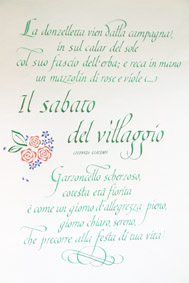 La donzelletta vien dalla campagna,
in sul calar del sole
col suo fascio dell'erba; e reca in mano
un mazzolin di rose e viole (...)
Il sabato
del villaggio
Garzoncello scherzoso,
cotesta età fiorita
è come un giorno d'allegrezza pieno,
giorno chiaro, sereno,
che precorre alla festa di tua vita.